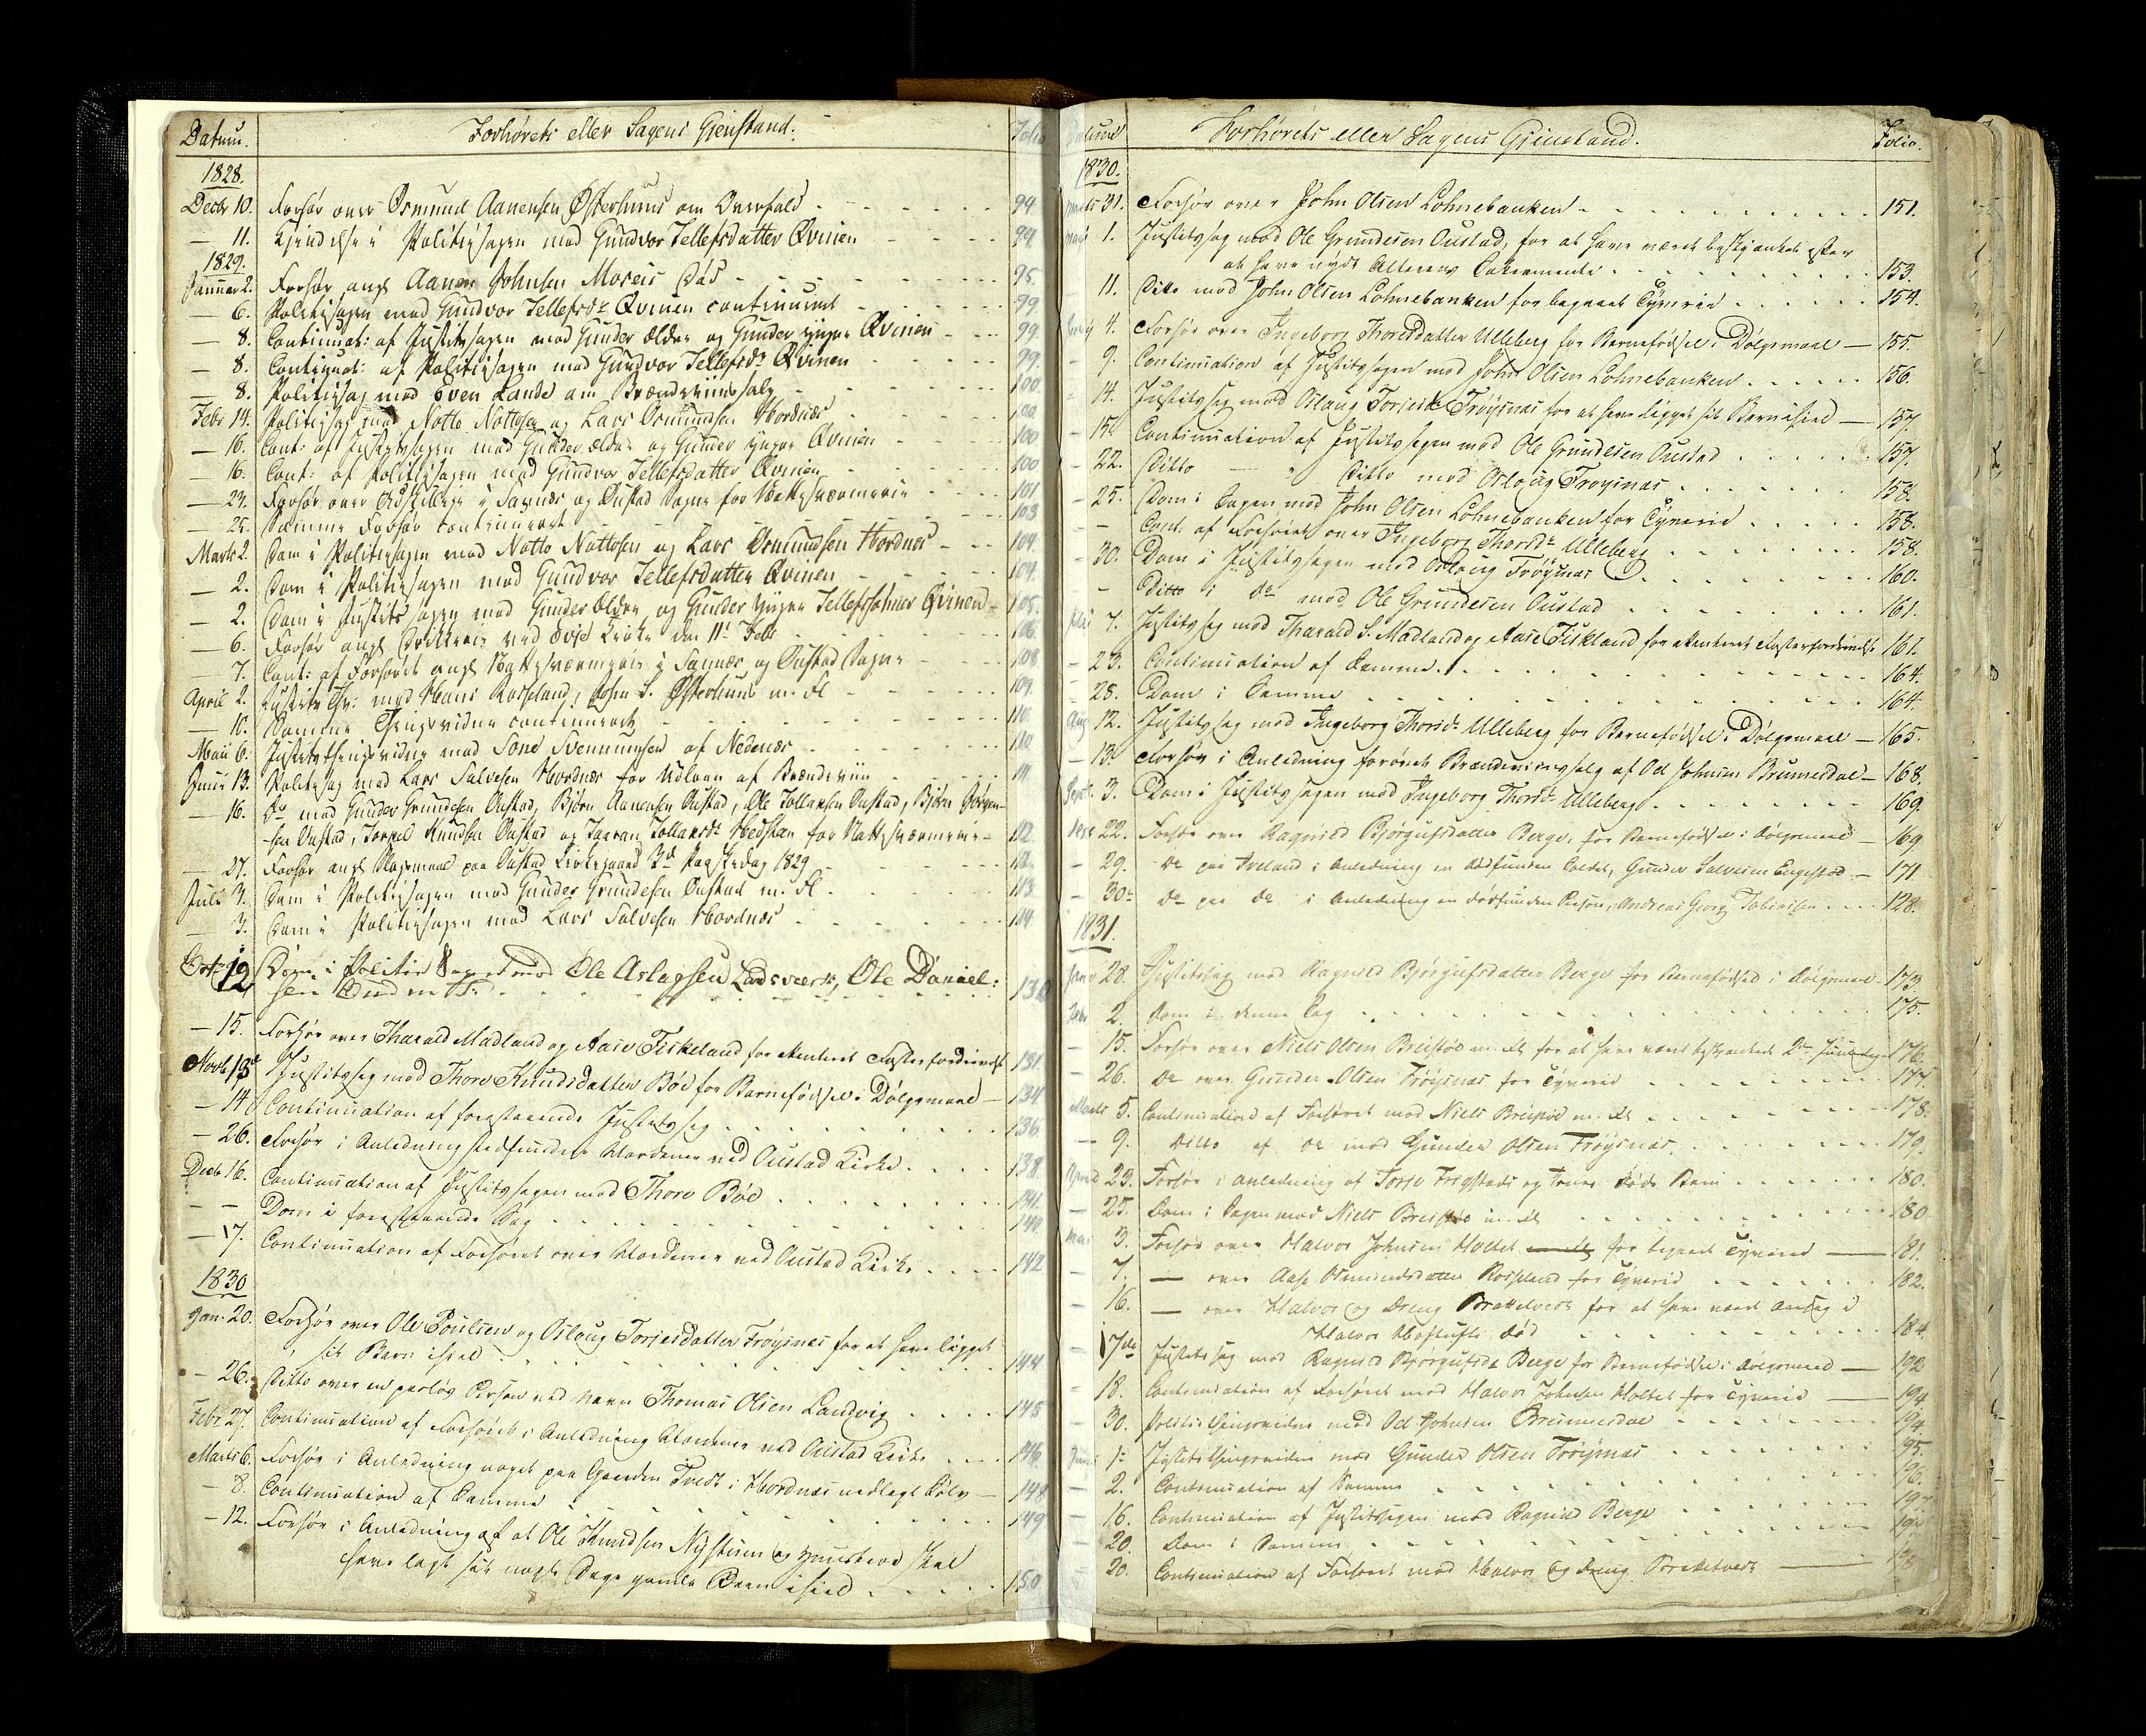 Datum. Forhørets eller Sagens Gienstand. Folio
1828.
Decbr 10. Forhør over Osmund Aanensen Østerhuus om Overfald 94
— 11. Kjendelse i Politiesagen mod Gundvor Tellefsdatter Qvinen 94
1829.
Januar 2. Forhør angd Aanen Johnsen Moseis Død 95.
— 6. Politiesagen mod Gundvor Tellefsdr Qvinen continueret 99.
— 8. Continuat: af Justitssagen mod Gunder ældre og Gunder yngre Qvinen 99.
— 8. Continuat: af Politiesagen mod Gundvor Tellefsdr Qvinen 99.
— 8. Politiesag mod Even Lande om Brændeviinssalg 100
Febr 14. Politiesag mod Notto Nottosen og Lars Osmundsen Hordnæs 100
— 16. Cont: af Justitssagen mod Gunder ældre og Gunder yngre Qvinen 100
— 16. Cont: af Politiesagen mod Gundvor Tellefsdatter Qvinen 100
— 24. Forhør over Adskillige i og Oustad Sogne for Nattesværmerie 101
— 25. Samme Forhør continueret 103
Marts 2. Dom i Politiesagen mod Notto Nottosen og Lars Osmundsen Hordnæs 104.
— 2. Dom i Politiesagen mod Gundvor Tellefsdatter Qvinen 104.
— 2. Dom i Justitssagen mod Gunder ældre og Gunder yngre Tellefssønner Qvinen 105.
— 6. Forhør angd ved Kirke den 11te Febr 106.
— 7. Cont: af Forhøret angd Nattesværmerie i og Oustad Sogne 108
April 2. Justits Thv: mod Hans Rosseland, John S. Østerhuus m. Fl 109.
— 10. Samme Thingsvidne continueret 110.
Maii 6. Justitsthingsvidne mod Sone Svenningsen af Nedenæs 110
Junii 13. Politiesag mod Lars Salvesen Hordnæs for Udsalg af Brændeviin 111
— 16. Do mod Gunder Grundesen Oustad, Bjørn Aanensen Oustad, Ole Tollaksen Oustad, Bjørn Jørgen-
sen Oustad, Torgel Knudsen Oustad og Taaran Tollaksdr Hedstøn for Nattesværmerie 112.
— 27. Forhør angd Slagsmaal paa Oustad Kirkegaard 3die Paaskedag 1829 112.
Juli 3. Dom i Politiesagen mod Gunder Grundesen Oustad m. Fl. 113
— 3. Dom i Politiesagen mod Lars Salvesen Hordnæs 114
Octr 12 Dom i Politie Sagen mod Ole Aslagsen Landsværk, Ole Daniel:
sen 130
— 15. Forhør over Tharald Madland og Aase Fiskeland for attenteret Fosterfordrivelse 131.
Novb 13. Justitssag mod Thore Knudsdatter Bøe for Barnefødsel i Dølgsmaal — 134
— 14 Continuation af forestaaende Justitssag 136
— 26. Forhør i Anledning stedfundne Uordener ved Oustad Kirke 138.
Decb 16. Continuation af Justitssagen mod Thore Bøe 141.
— – Dom i forestaaende Sag 141
— 17. Continuation af Forhøret over Uordener ved Oustad Kirke 142
1830
Jan. 20. Forhør over Ole Poulsen og Oslaug Torjesdatter Frøysnæs for at have ligget
sit Barn ihiel 144
— 26. Ditto over en pasløs Person ved Navn Thomas Olsen Landvig 145
Febr 27. Continuation af Forhøret i Anledning Uordener ved Oustad Kirke 146.
Marts 6. Forhør i Anledning noget paa Gaarden Tveit i Hordnæs nedlagt Sølv — 148
— 8. Continuation af Samme 149
— 12. Forhør i Anledning af at Ole Knudsen Nystuen og Hustrue skal
have lagt sit nogle Dage gamle Barn ihiel 150
Datum Forhørets eller Sagens Gienstand. Folio.
1830.
Marts 31. Forhør over John Olsen Lohnebanken 151.
Maj 1. Justitssag mod Ole Grundesen Oustad, for at have været beskjænket efter
at have nydt Alterens Sakramente 153.
11. Ditto mod John Olsen Lohnebanken for begaaet Tyverie 154.
4. Forhør over Ingeborg Thorsdatter Ulleberg for Barnefødsel i Dølgsmaal — 155.
- 9. Continuation af Justitssagen mod John Olsen Lohnebanken 156.
- 14. Justitssag mod Oslaug Torjesdr Frøysnæs for at have ligget sit Barn ihiel — 157.
- 15. Continuation af Justitssagen mod Ole Grundesen Oustad 157.
- 22. Ditto — " Ditto mod Oslaug Frøysnæs 158.
- 25. Dom i Sagen mod John Olsen Lohnebanken for Tyverie 158.
- Cont. af Forhøret over Ingeborg Thorsdr Ulleberg 158.
- 30. Dom i Justitssagen mod Oslaug Frøysnæs 160.
- Ditto i do mod Ole Grundesen Oustad 161.
Juli 7. Justitssag mod Tharald S. Madland og Aase Fiskland for attenteret Fosterfordrivelse 161.
- 23. Continuation af Samme 164.
- 28. Dom i Samme 164.
Aug 12. Justitssag mod Ingeborg Thorsdr Ulleberg for Barnefødsel i Dølgsmaal — 165.
- 13. Forhør i Anledning forøvet Brændeviinssalg af Od Johnsen Brunnesdal — 168.
Septr. 3. Dom i Justitssagen mod Ingeborg Thorsdr Ulleberg 169.
22. Forhør over Ragnild Bjørgulfsdatter Berge, for Barnefødsel i Dølgsmaal — 169
- 29. Do paa Iveland i Anledning en dødfunden Soldat, Gunder Salvesen Engestød — 171
- 30te Do paa Do i Anledning en dødfunden Person, Andreas Georg Tobiasen 128.
1831.
Janr 28. Justitssag mod Ragnild Bjørgufsdatter Berge for Barnefødsel i Dølgsmaal 173.
Febr 2. Dom i denne Sag 175.
— 15. Forhør over Niels Olsen Breistøe m. Fl for at have været beskjænkede 2den Juuledag 176.
— 26. Do over Gunder Olsen Frøysnæs for Tyverie 177.
Marts 5. Continuation af Forhøret mod Niels Breistøe m. Fl 178.
— 9. Ditto af do mod Gunder Olsen Frøysnæs. 179.
April 23. Forhør i Anledning af Torje Frigstads og Kones døde Barn 180.
— 25. Dom i Sagen mod Niels Breistøe m. Fl 180
Mai 3. Forhør over Halvor Johnsen Holtet for begaaet Tyverie — 181.
— 7. — over Aase Osmundsdatter Rosseland for Tyverie 182.
— 16. — over Halvor og Dreng Brattelveds for at have været Aarsag i
Halvor død 184.
— 17de Justitssag mod Ragnild Bjørgufsdr Berge for Barnefødsel i Dølgsmaal — 192
— 18. Continuation af Forhøret mod Halvor Johnsen Holtet for Tyverie — 194.
— 30. Politie thingsvidne mod Od Johnsen Brunnesdal 194.
Juni 1te Justitsthingsvidne mod Gunder Olsen Frøysnæs 195.
— 2. Continuation af Samme 196.
— 16. Continuation af Justitssagen mod Ragnild Berge 197
— 20. Dom i Samme
— 20. Continuation af Forhøret mod Halvor og Dreng Brattelveds